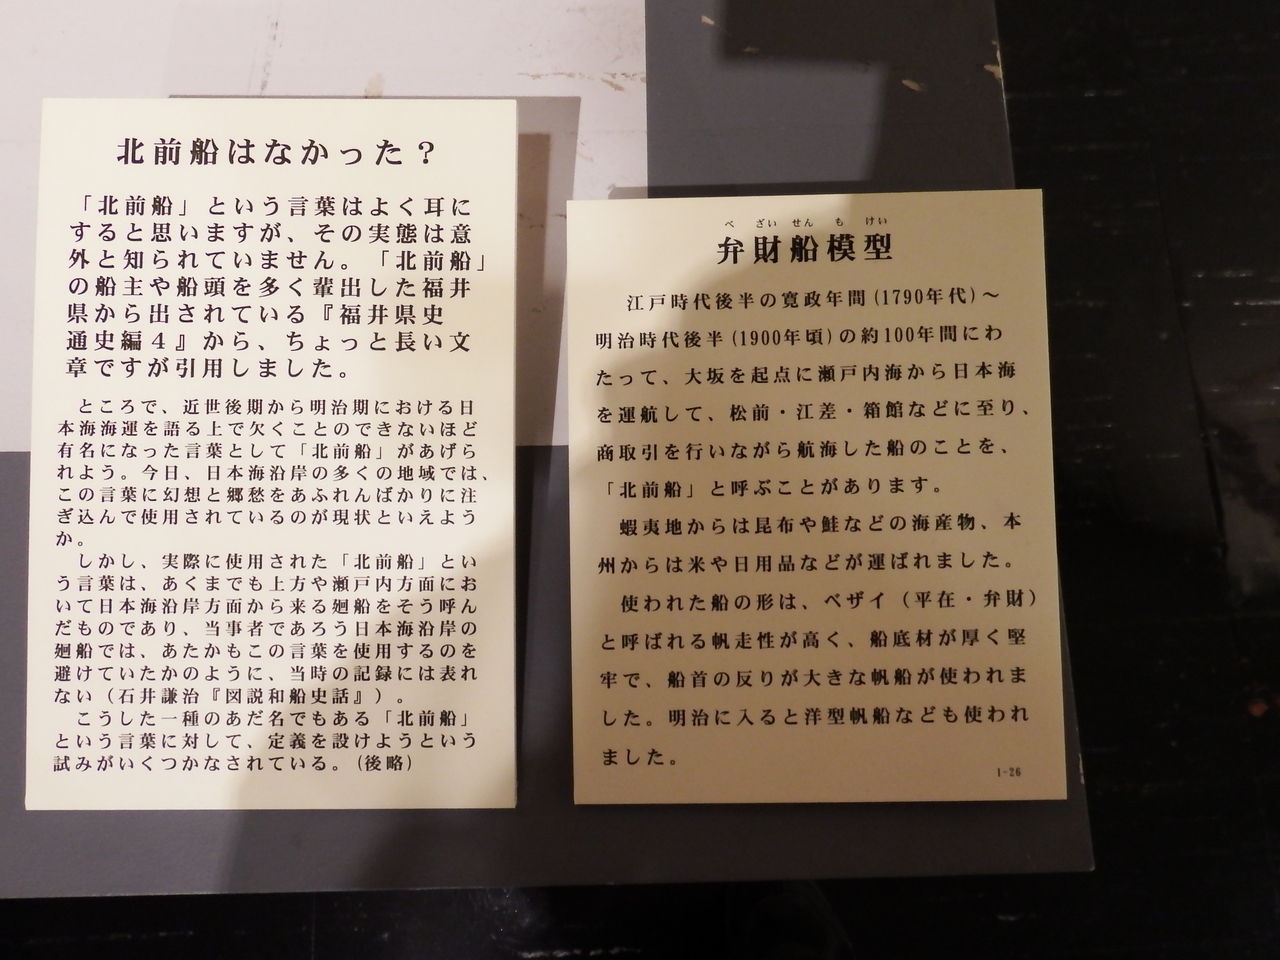 北前船はなかった？
「北前船」という言葉はよく耳に
すると思いますが、その実態は意
外と知られていません。「北前船」
の船主や船頭を多く輩出した福井
県から出されている『福井県史
通史編４』から、ちょっと長い文
章ですが引用しました。
ところで、近世後期から明治期における日
本海海運を語る上で欠くことのできないほど
有名になった言葉として「北前船」があげら
れよう。今日、日本海沿岸の多くの地域では、
この言葉に幻想と郷愁をあふれんばかりに注
ぎ込んで使用されているのが現状といえよう
か。
しかし、実際に使用された「北前船」とい
う言葉は、あくまでも上方や瀬戸内方面にお
いて日本海沿岸方面から来る廻船をそう呼ん
だものであり、当事者であろう日本海沿岸の
廻船では、あたかもこの言葉を使用するのを
避けていたかのように、当時の記録には表れ
ない（石井謙治『図説和船史話』）。
こうした一種のあだ名でもある「北前船」
という言葉に対して、定義を設けようという
試みがいくつかなされている。(後略)
べ ざい せん も けい
弁財船模型
江戸時代後半の寛政年間(1790年代)～
明治時代後半(1900年頃)の約100年間にわ
たって、大坂を起点に瀬戸内海から日本海
を運航して、松前・江差・箱館などに至り、
商取引を行いながら航海した船のことを、
「北前船」と呼ぶことがあります。
蝦夷地からは昆布や鮭などの海産物、本
州からは米や日用品などが運ばれました。
使われた船の形は、ベザイ（平在・弁財）
と呼ばれる帆走性が高く、船底材が厚く堅
牢で、船首の反りが大きな帆船が使われま
した。明治に入ると洋型帆船なども使われ
ました。
1-26